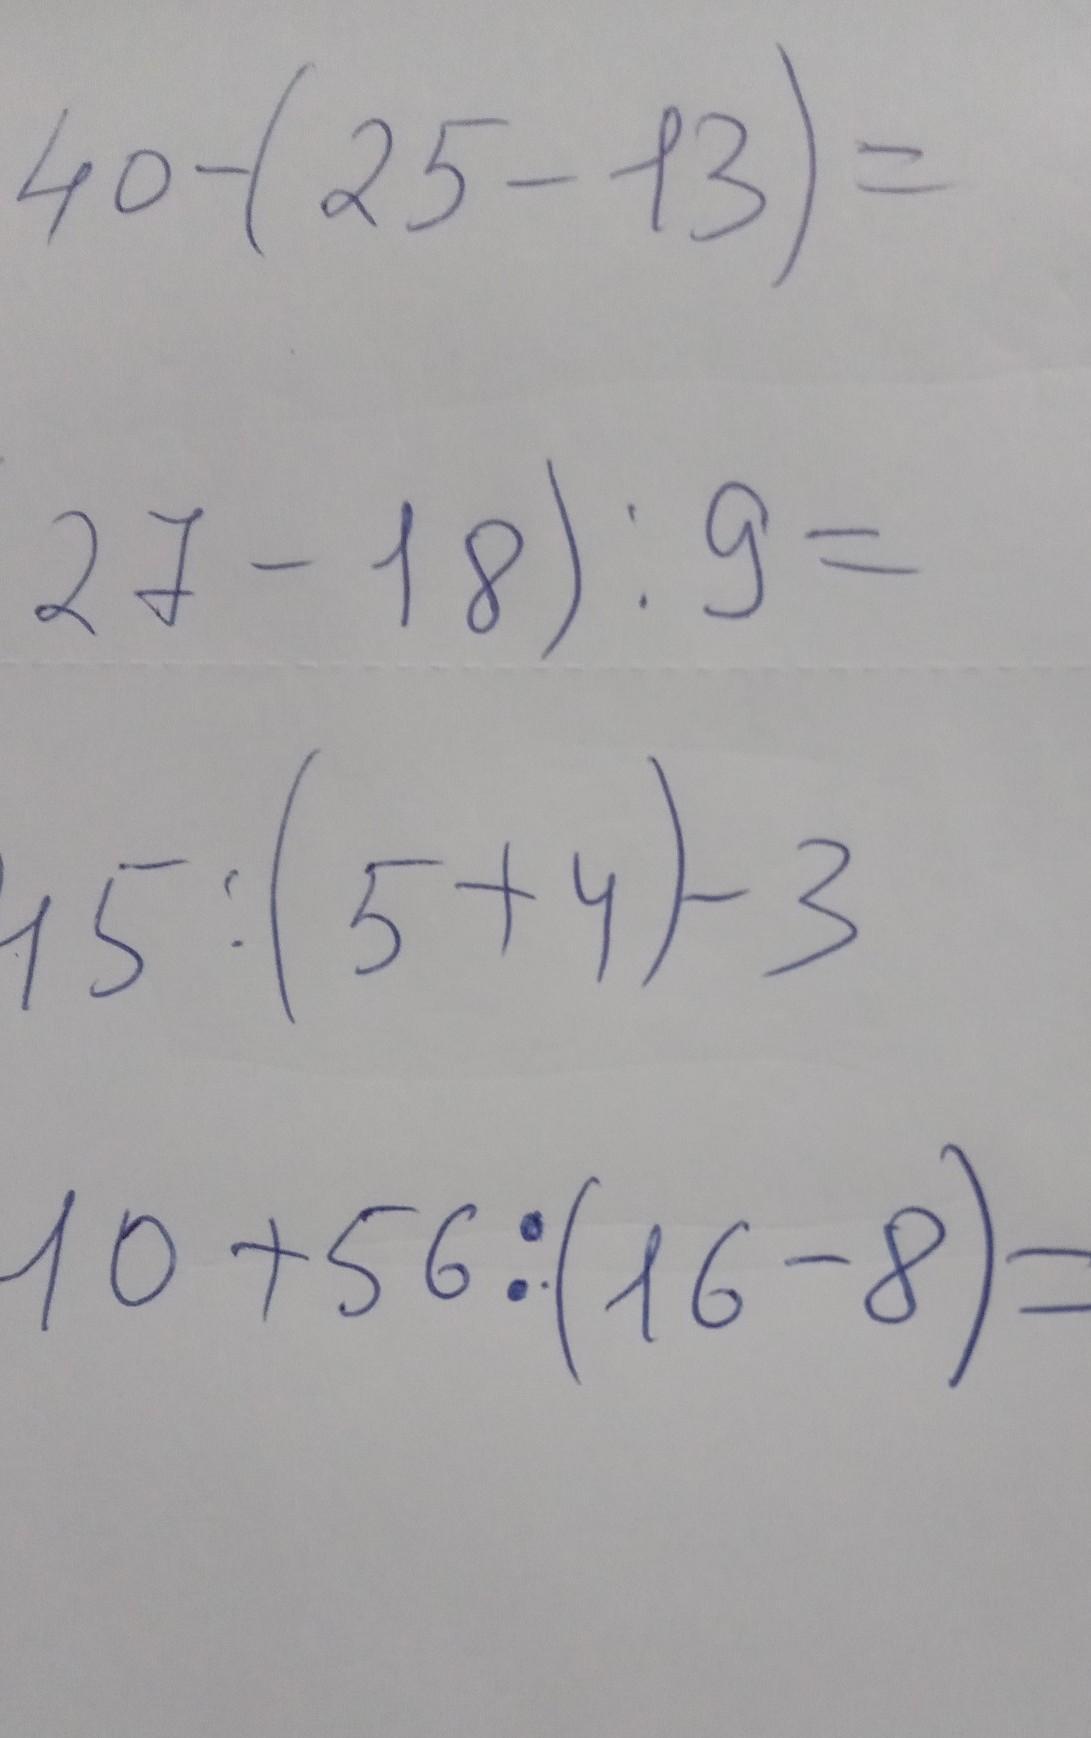 40-(25-13)=
27-18):9=
45:(5+4)-3
10+56:(16-8)=